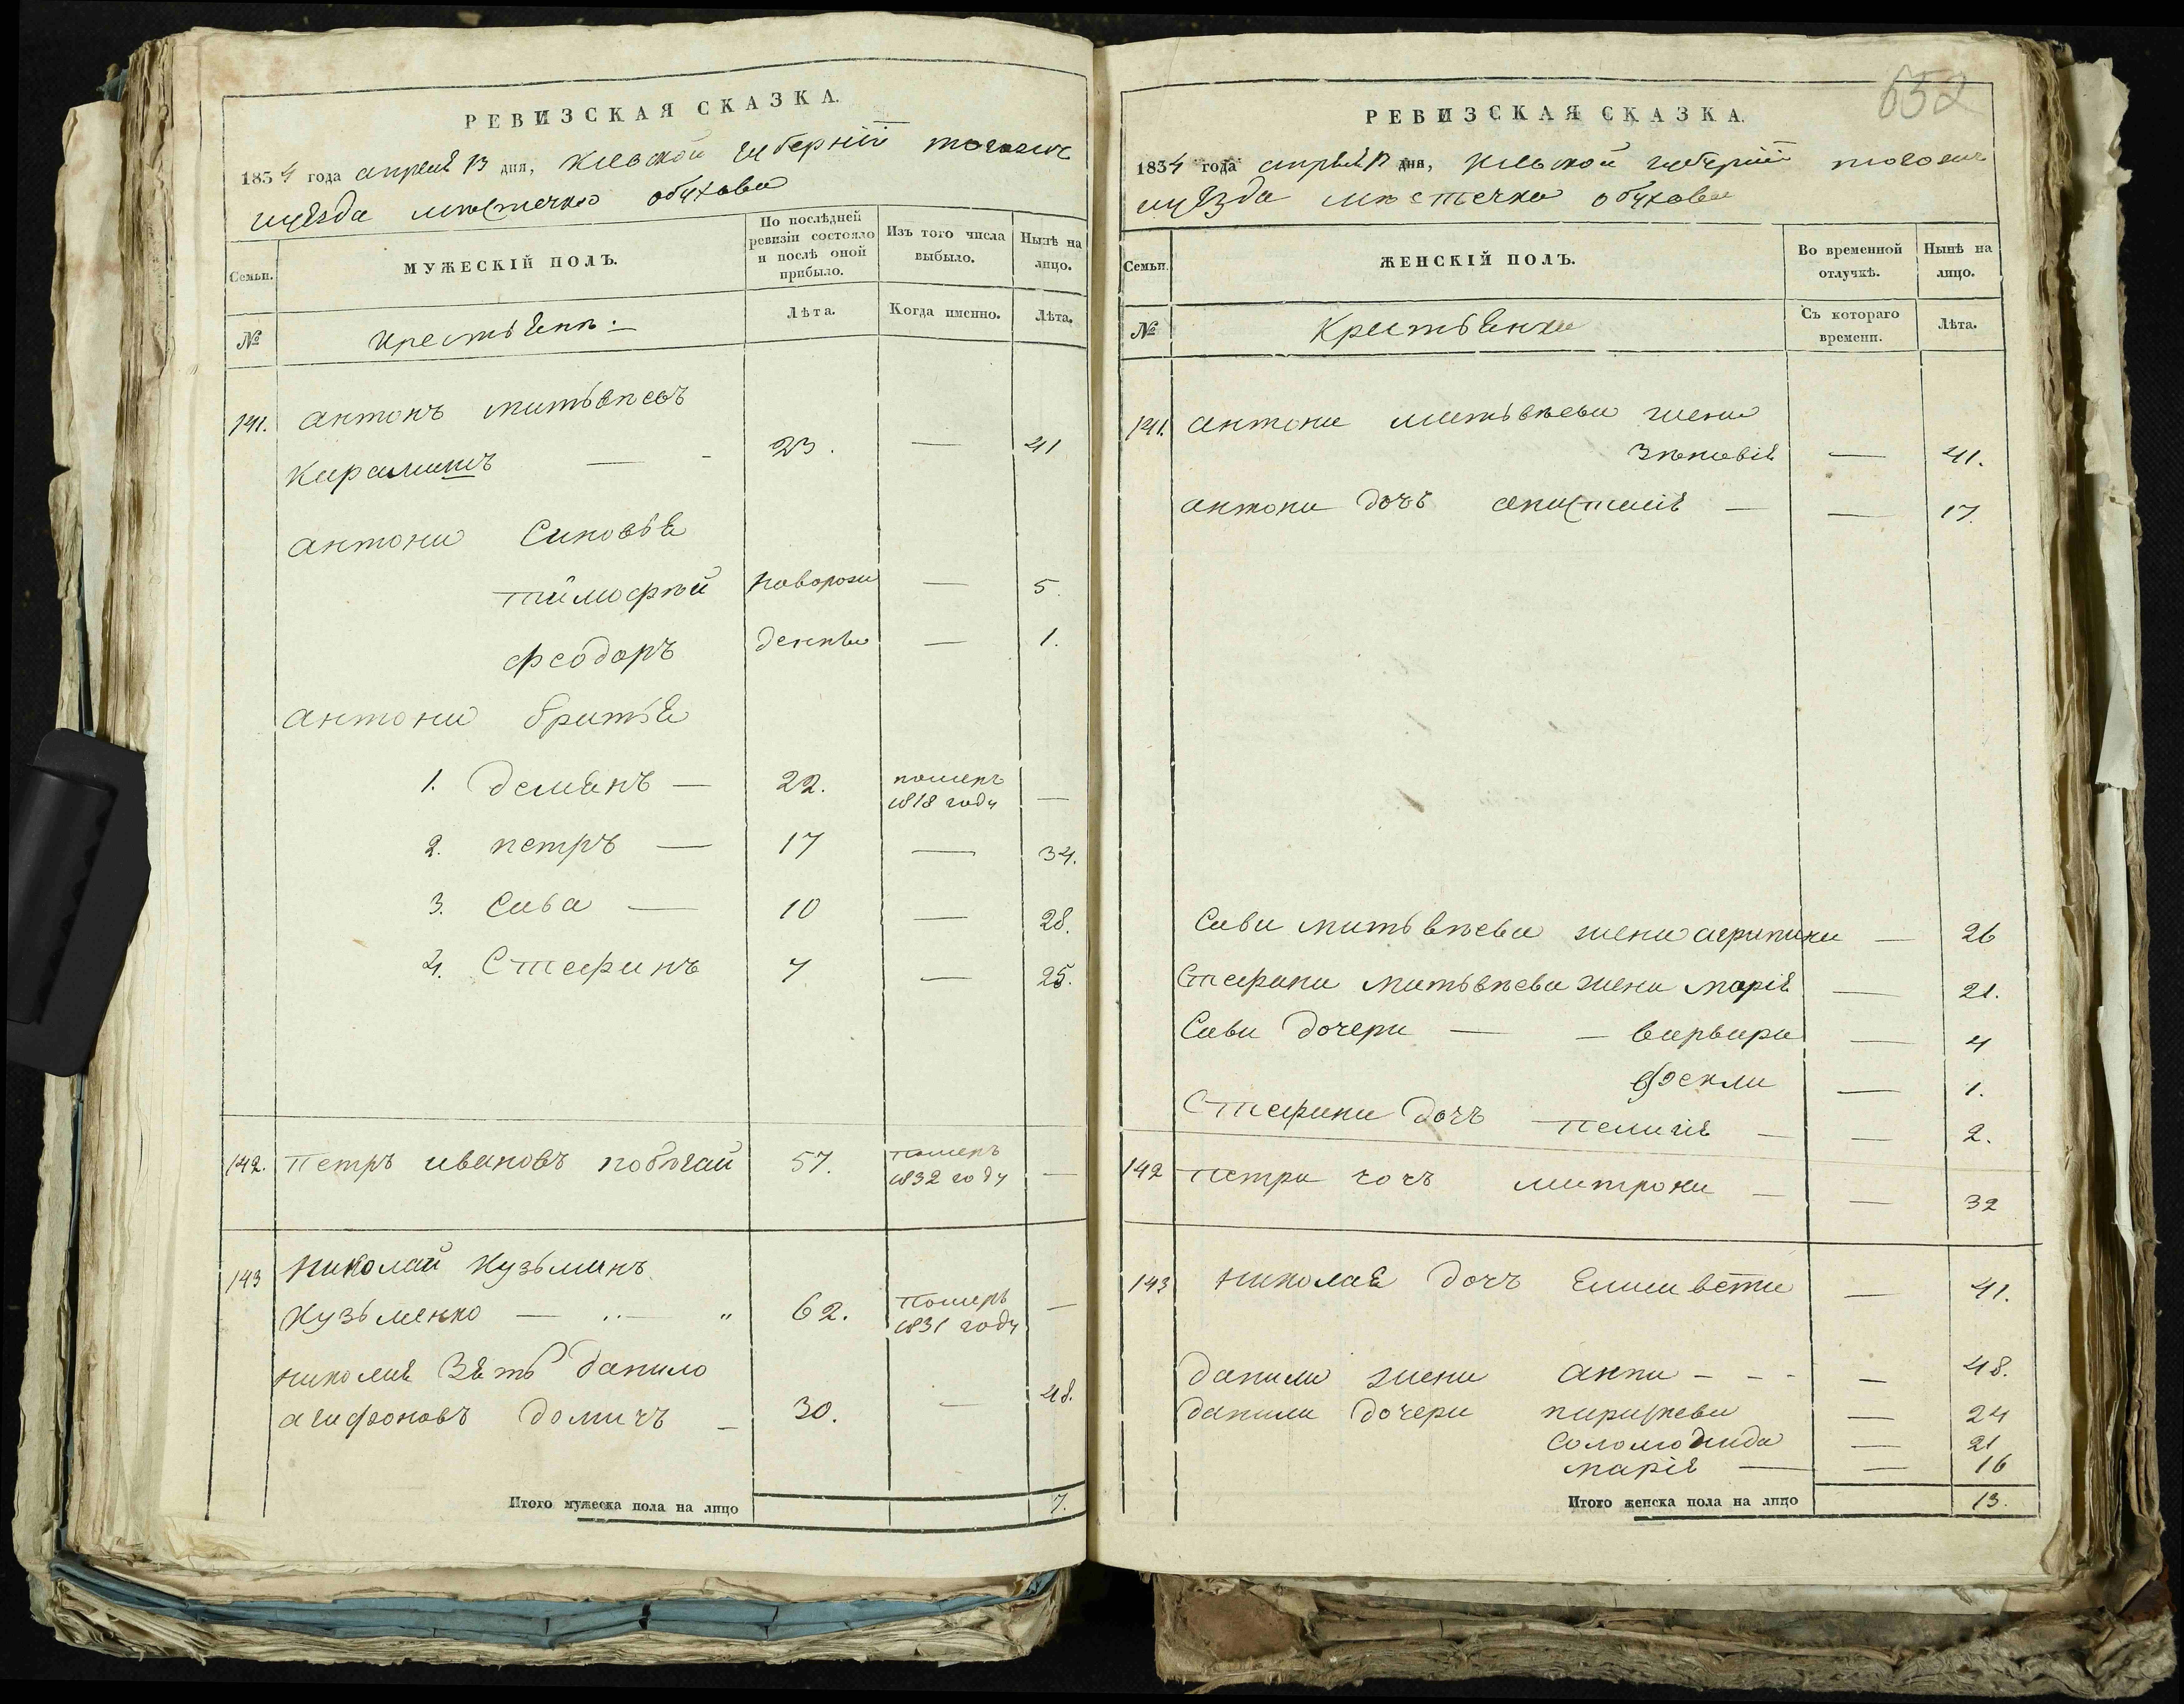 РЕВИЗСКАЯ СКАЗКА.
1834 года апреля 13 дня, Киевской губерніи тогожъ
уезда местечка обухова
Семьи.
МУЖЕСКІЙ ПОЛЪ.
По послѣдней ревизіи состояло и послѣ оной прибыло.
Изъ того числа выбыло.
Нынѣ на лицо.
№
Крестьяне:
Лѣта.
Когда именно.
Лѣта.
141. антонъ матвѣевъ
23. — 41
антона Синовья
тимофѣй новорож — 5.
феодоръ денны — 1.
антона братья
1. демянъ — 22. померъ 1818 году —
2. петръ — 17 — 34.
3. Сава — 10 — 28.
4. Стефанъ 7 — 25.
142. Петръ ивановъ 57. померъ 1832 году —
143 николай Кузьминъ
Кузьменко — 62. Померъ 1831 году —
николая Зять данило
агафоновъ 30. — 48.
Итого мужеска пола на лицо 7.
652
РЕВИЗСКАЯ СКАЗКА.
1834 года апреля 13 дня, Киевской губерніи тогожъ
уезда местечка обухова
Семьи.
ЖЕНСКІЙ ПОЛЪ.
Во временной отлучкѣ.
Нынѣ на лицо.
№
Крестьянки
Съ котораго времени.
Лѣта.
141. антона матьвѣева жена
Зѣновія — 41.
антона дочъ анастасія — — 17.
Сави матьвѣева жена агрипина — 26
Стефана матьвѣева жена марія — 21.
Сави дочери — — варвара — 4
фекла — 1.
Стефана дочъ пелагія — — 2.
142 Петра дочъ матрона — — 32
143 николая дочъ елисавета — 41.
данила жена анна - - - — 48.
данила дочери параскева — 24
соломонида — 21
марія — — 16
Итого женска пола на лицо 13.